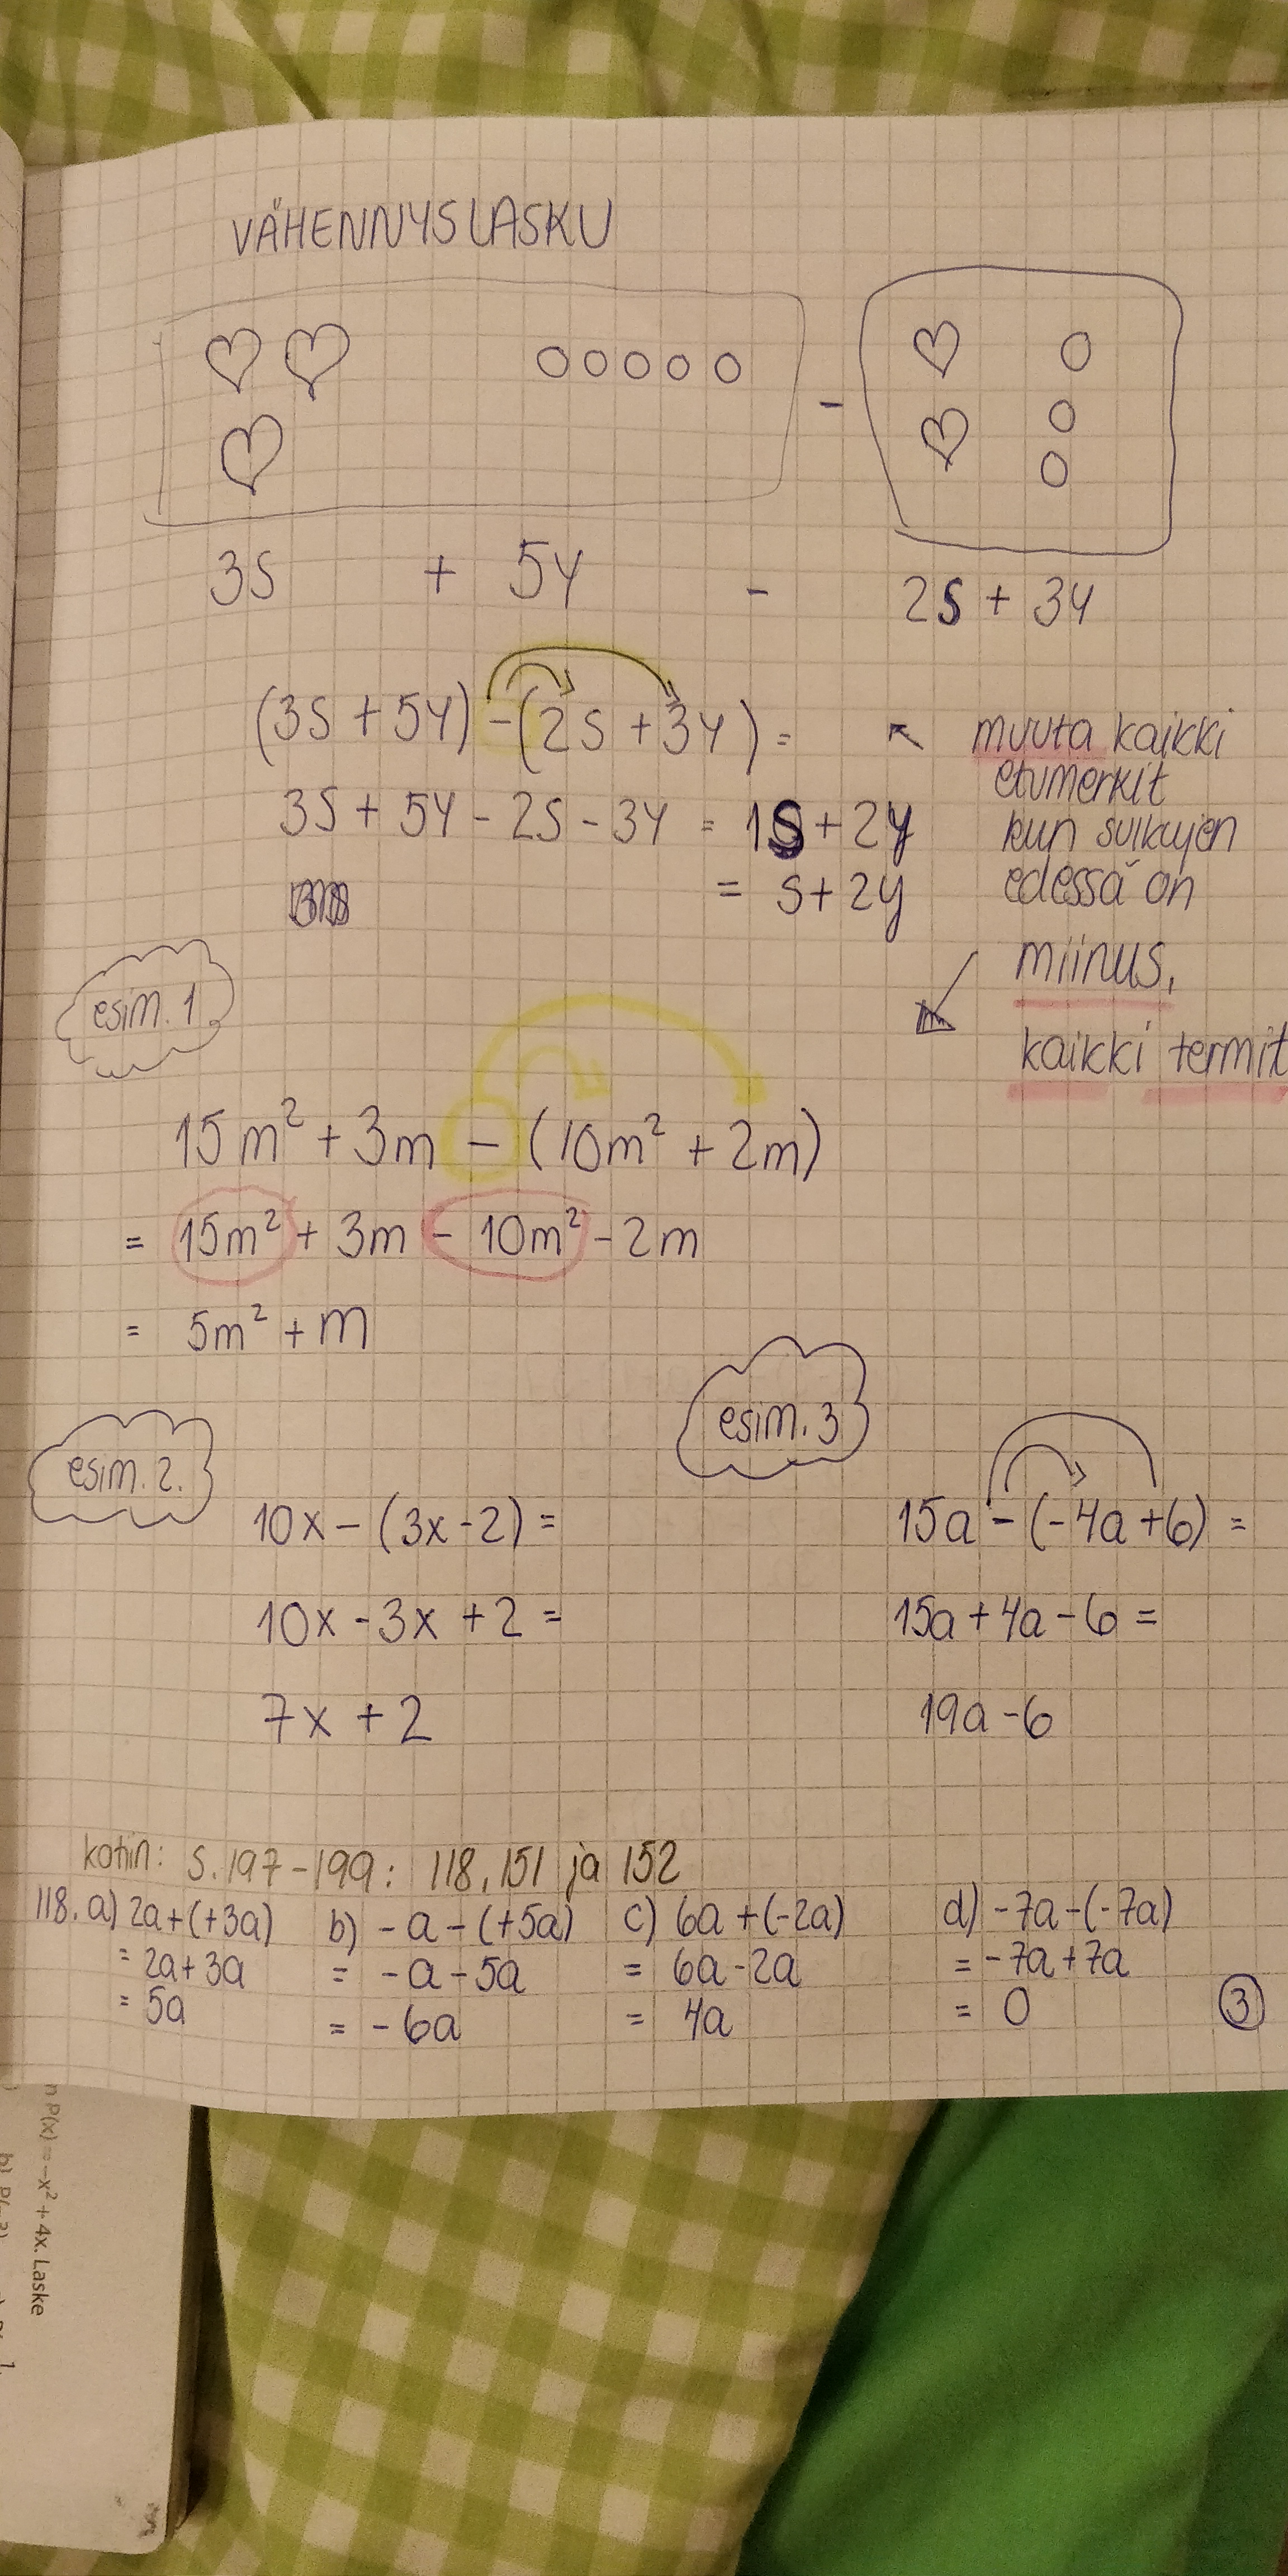 VÄHENNYSLASKU
-
3s + 5y - 2s + 3y
(3s + 5y) - (2s + 3y) =
3s + 5y - 2s - 3y = 1s + 2y
= s + 2y
muuta kaikki
etumerkit
kun sulkujen
edessä on
miinus,
kaikki termit
esim. 1.
15m² + 3m - (10m² + 2m)
= 15m² + 3m - 10m² - 2m
= 5m² + m
esim. 2.
10x - (3x - 2) =
10x - 3x + 2 =
7x + 2
esim. 3
15a - (-4a + 6) =
15a + 4a - 6 =
19a - 6
kotiin: s. 197-199: 118, 151 ja 152
118. a) 2a + (+3a)
= 2a + 3a
= 5a
b) -a - (+5a)
= -a - 5a
= -6a
c) 6a + (-2a)
= 6a - 2a
= 4a
d) -7a - (-7a)
= -7a + 7a
= 0
3
P(x) = -x² + 4x. Laske